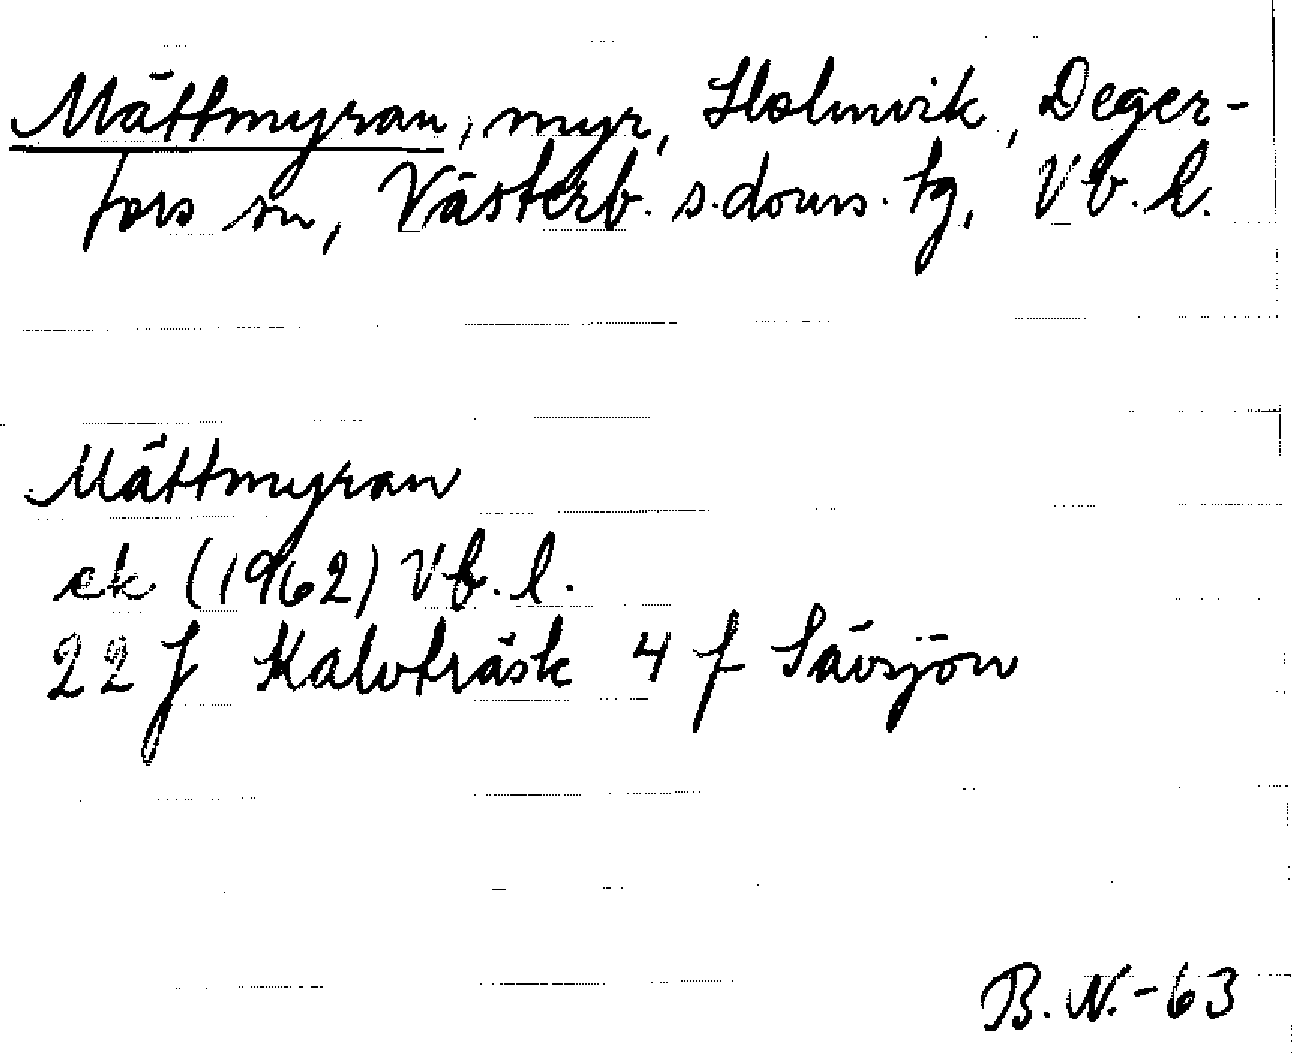 Mättmyran, myr, Holmvik, Deger-
fors sn, Västerb. s. doms. tg, Vb. l.
Mättmyran
ek (1962) Vb. l.
22 J Kalvträsk 4 f Sävsjön
B. N. -63